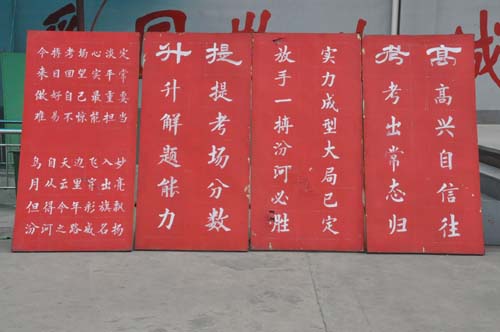 高
高兴自信往
考
考出常态归
实力成型大局已定
放手一搏汾河必胜
提
提考场分数
升
升解题能力
今将考场心淡定
来日回望实平常
做好自己最重要
难易不惊能担当
鸟自天边飞入妙
月从云里穿出亮
但得今年彩旗飘
汾河之路威名扬